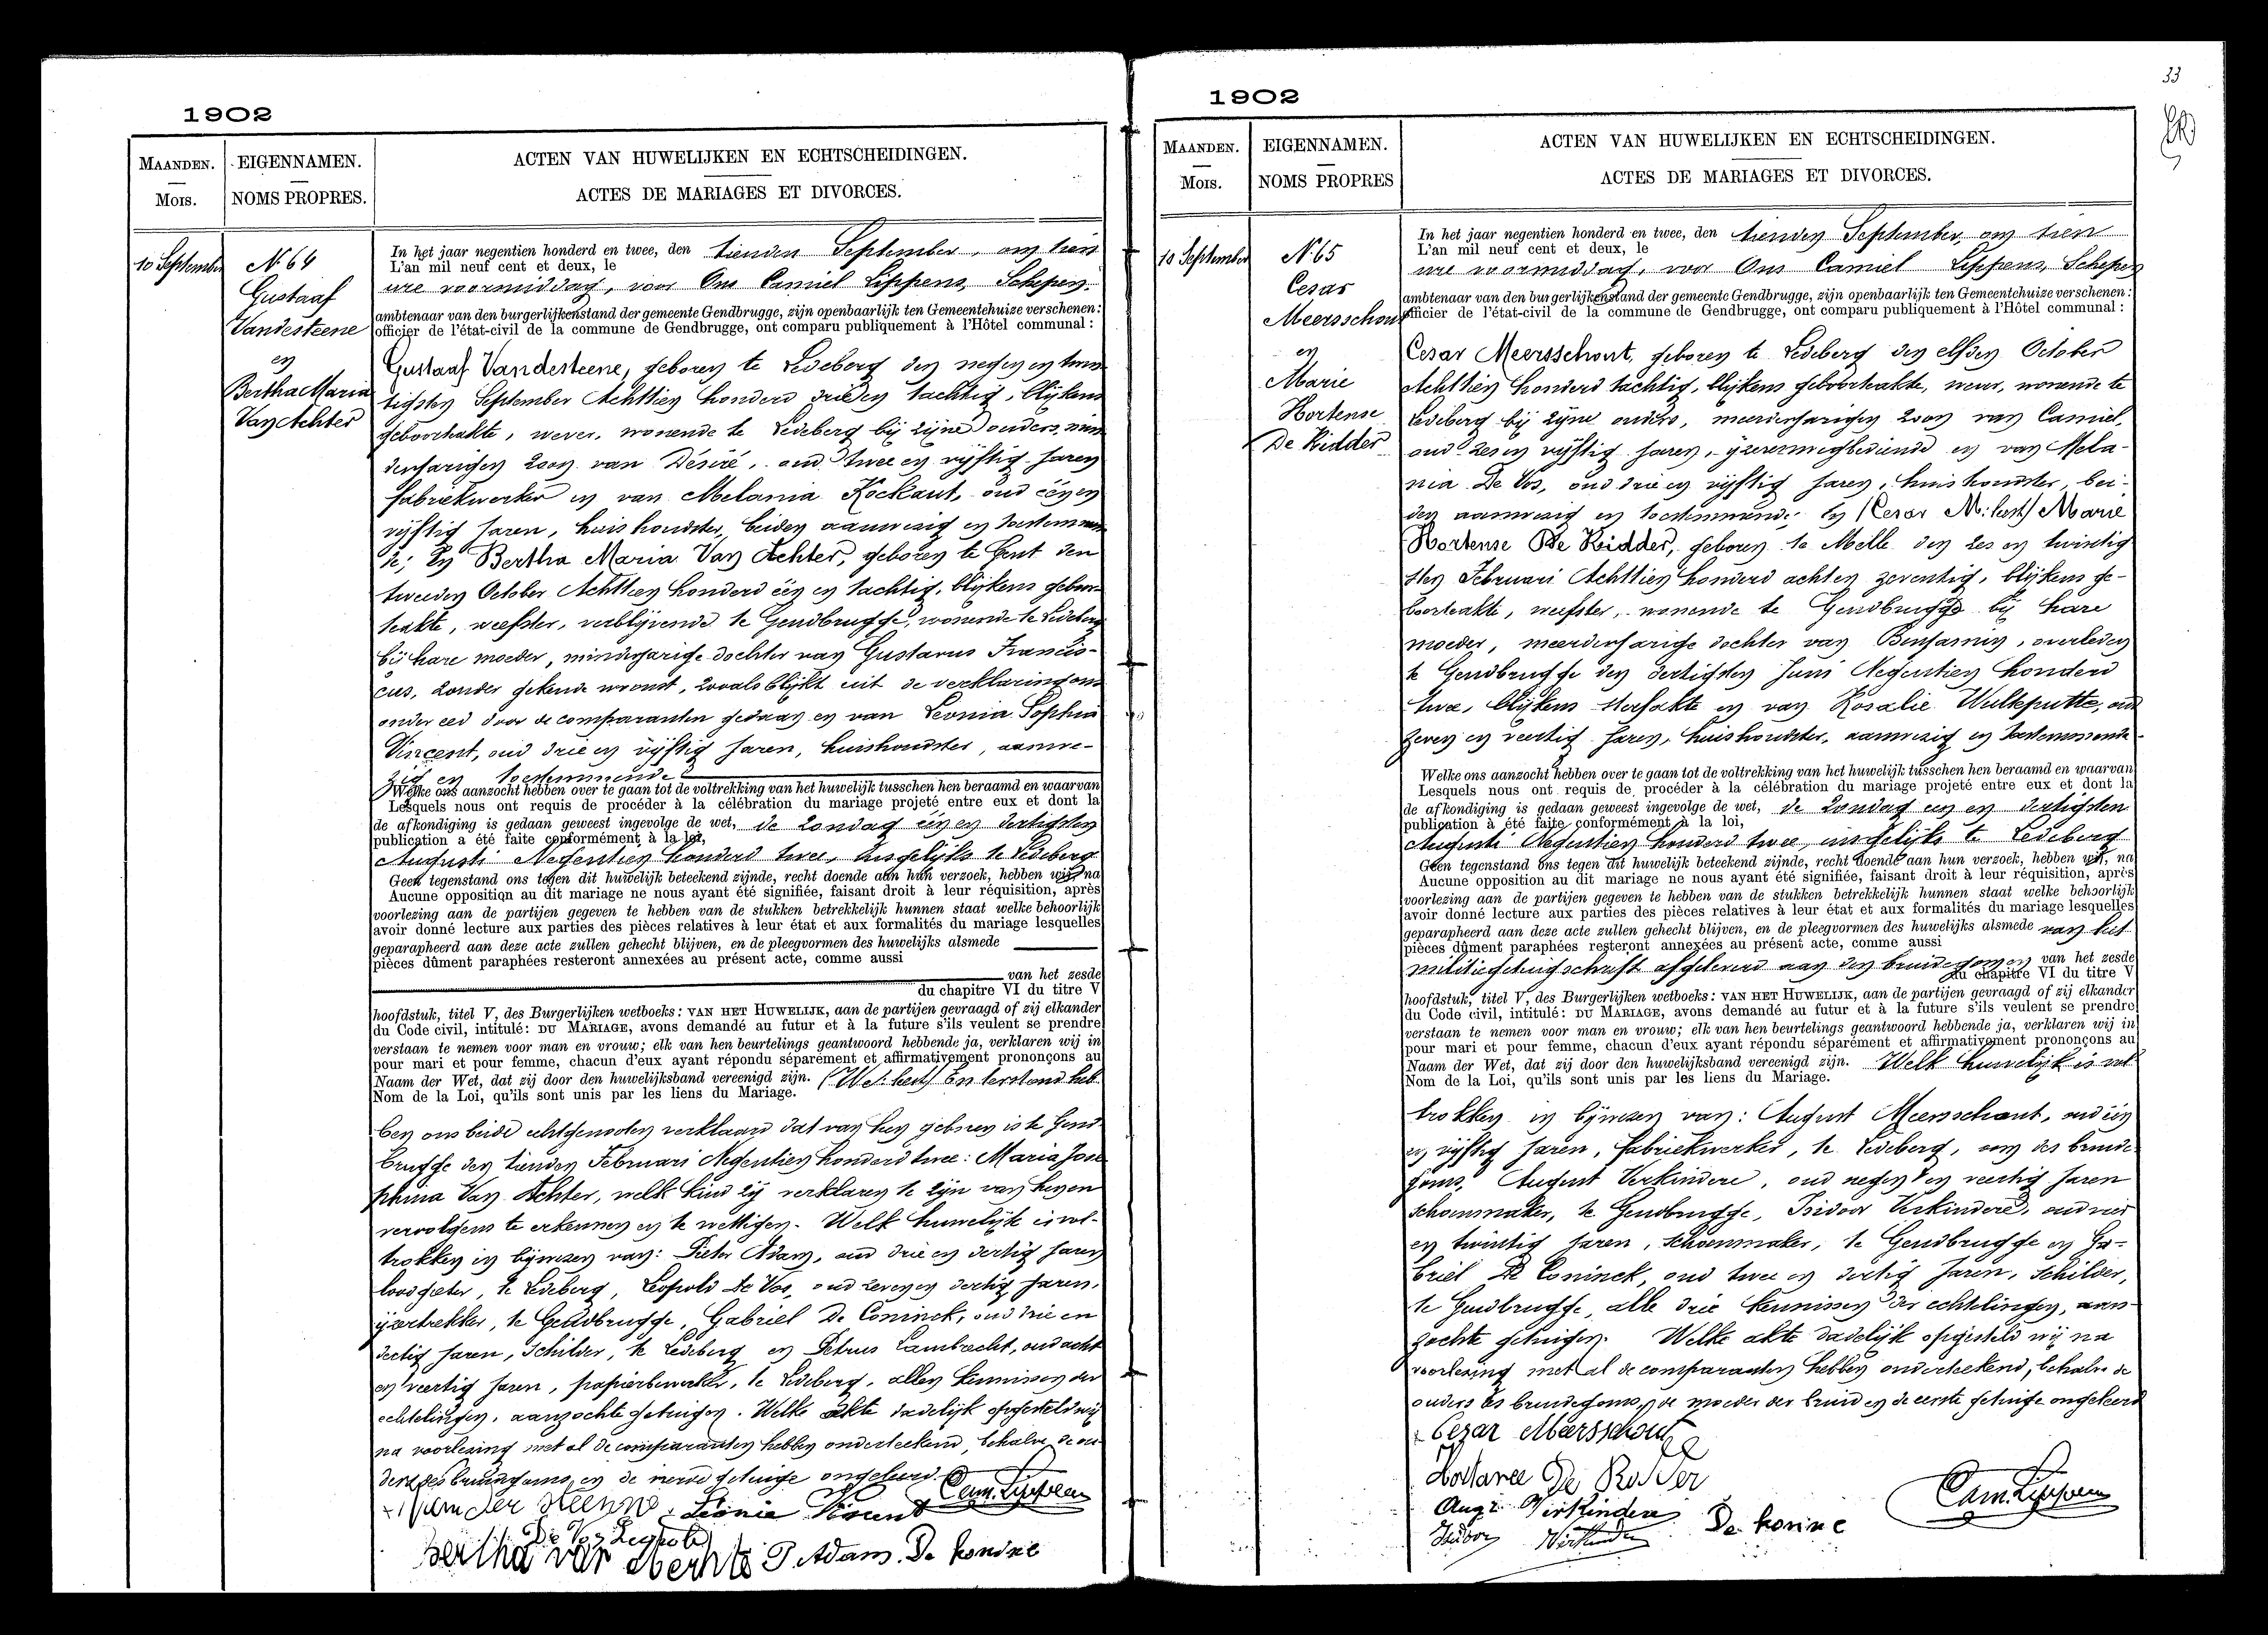 1902
MAANDEN.
Mois.
EIGENNAMEN.
NOMS PROPRES.
ACTEN VAN HUWELIJKEN EN ECHTSCHEIDINGEN.
ACTES DE MARIAGES ET DIVORCES.
10 September
N. 64
Gustaaf
Vandesteene
en
Bertha Maria
Van Achter
In het jaar negentien honderd en twee, den tienden September, om tien
L'an mil neuf cent et deux, le
ure voormiddag, voor Ons Camiel Lippens, Schepen,
ambtenaar van den burgerlijkenstand der gemeente Gendbrugge, zijn openbaarlijk ten Gemeentehuize verschenen:
officier de l'état-civil de la commune de Gendbrugge, ont comparu publiquement à l'Hôtel communal:
Gustaaf Vandesteene, geboren te Ledeberg den negen en twin
tigsten September Achttien honderd drie en tachtig, blijkens
geboorteakte, wever, wonende te Ledeberg bij zijne ouders, min
derjarigen zoon van Désiré, oud twee en vijftig jaren
fabriekwerker en van Melania Kockaut, oud één en
vijftig jaren, huishoudster, beiden aanwezig en toestemmen
de; En Bertha Maria Van Achter, geboren te Gent den
tweeden October Achttien honderd één en tachtig, blijkens geboor
teakte, weefster, verblijvende te Gendbrugge, wonende te Ledeberg
bij hare moeder, minderjarige dochter van Gustavus Francis-
cus, zonder gekende woonst, zooals blijkt uit de verklaring ons
onder eed door de comparanten gedaan en van Leonia Sophia
Vincent, oud drie en vijftig jaren, huishoudster, aanwe-
zig en toestemmende
Welke ons aanzocht hebben over te gaan tot de voltrekking van het huwelijk tusschen hen beraamd en waarvan
Lesquels nous ont requis de procéder à la célébration du mariage projeté entre eux et dont la
de afkondiging is gedaan geweest ingevolge de wet, de zondag één en dertigsten
publication a été faite conformément à la loi,
Augusti Negentien honderd twee, insgelijks te Ledeberg
Geen tegenstand ons tegen dit huwelijk beteekend zijnde, recht doende aan hun verzoek, hebben wij, na
Aucune opposition au dit mariage ne nous ayant été signifiée, faisant droit à leur réquisition, après
voorlezing aan de partijen gegeven te hebben van de stukken betrekkelijk hunnen staat welke behoorlijk
avoir donné lecture aux parties des pièces relatives à leur état et aux formalités du mariage lesquelles
geparapheerd aan deze acte zullen gehecht blijven, en de pleegvormen des huwelijks alsmede
pièces dûment paraphées resteront annexées au présent acte, comme aussi
van het zesde
du chapitre VI du titre V
hoofdstuk, titel V, des Burgerlijken wetboeks: VAN HET HUWELIJK, aan de partijen gevraagd of zij elkander
du Code civil, intitulé: DU MARIAGE, avons demandé au futur et à la future s'ils veulent se prendre
verstaan te nemen voor man en vrouw; elk van hen beurtelings geantwoord hebbende ja, verklaren wij in
pour mari et pour femme, chacun d'eux ayant répondu séparément et affirmativement prononçons au
Naam der Wet, dat zij door den huwelijksband vereenigd zijn. En terstond heb
Nom de la Loi, qu'ils sont unis par les liens du Mariage.
ben ons beide echtgenooten verklaard dat van hen geboren is te Gend
brugge den tienden Februari Negentien honderd twee: Maria Jose
phina Van Achter, welk kind zij verklaren te zijn van hen en
vervolgens te erkennen en te wettigen. Welk huwelijk is vol-
trokken in bijwezen van: Pieter Adam, oud drie en dertig jaren
loodgieter, te Ledeberg, Leopold De Vos, oud zeven en dertig jaren,
ijzertrekker, te Gendbrugge, Gabriël De Coninck, oud drie en
dertig jaren, schilder, te Ledeberg en Petrus Lambrecht, oud acht
en veertig jaren, papierbewerker, te Ledeberg, allen kennissen der
echtelingen, aanzochte getuigen. Welke akte dadelijk opgesteld wij
na voorlezing met al de comparanten hebben onderteekend, behalve de ou
ders des bruidegoms en de vierde getuige ongeleerd.
Van der Steenne. Leonie Vincent Cam. Lippens
De Vos Leopold
Bertha van Achte P. Adam. De Konine
33
1902
MAANDEN.
Mois.
EIGENNAMEN.
NOMS PROPRES
ACTEN VAN HUWELIJKEN EN ECHTSCHEIDINGEN.
ACTES DE MARIAGES ET DIVORCES.
10 September
N. 65
Cesar
Meersschout
en
Marie
Hortense
De Ridder
In het jaar negentien honderd en twee, den tienden September, om tien
L'an mil neuf cent et deux, le
ure voormiddag, voor Ons Camiel Lippens, Schepen
ambtenaar van den burgerlijkenstand der gemeente Gendbrugge, zijn openbaarlijk ten Gemeentehuize verschenen:
officier de l'état-civil de la commune de Gendbrugge, ont comparu publiquement à l'Hôtel communal:
Cesar Meersschout, geboren te Ledeberg den elfden October
Achttien honderd tachtig, blijkens geboorteakte, wever, wonende te
Ledeberg bij zijne ouders, meerderjarigen zoon van Camiel,
oud zes en vijftig jaren, ijzerenwegbediende en van Mela-
nia De Vos, oud drie en vijftig jaren, huishoudster, bei-
den aanwezig en toestemmende; En (Cesar M: best) Marie
Hortense De Ridder, geboren te Melle den zes en twintig
sten Februari Achttien honderd acht en zeventig, blijkens ge-
boorteakte, weefster, wonende te Gendbrugge bij hare
moeder, meerderjarige dochter van Benjamin, overleden
te Gendbrugge den dertigsten Juni Negentien honderd
twee, blijkens sterfakte en van Rosalie Wulteputte, oud
zeven en veertig jaren, huishoudster, aanwezig en toestemmende
Welke ons aanzocht hebben over te gaan tot de voltrekking van het huwelijk tusschen hen beraamd en waarvan
Lesquels nous ont requis de procéder à la célébration du mariage projeté entre eux et dont la
de afkondiging is gedaan geweest ingevolge de wet, de zondag een en dertigsten
publication à été faite conformément à la loi,
Augusti Negentien honderd twee, insgelijks te Ledeberg
Geen tegenstand ons tegen dit huwelijk beteekend zijnde, recht doende aan hun verzoek, hebben wij, na
Aucune opposition au dit mariage ne nous ayant été signifiée, faisant droit à leur réquisition, après
voorlezing aan de partijen gegeven te hebben van de stukken betrekkelijk hunnen staat welke behoorlijk
avoir donné lecture aux parties des pièces relatives à leur état et aux formalités du mariage lesquelles
geparapheerd aan deze acte zullen gehecht blijven, en de pleegvormen des huwelijks alsmede van het
pièces dûment paraphées resteront annexées au présent acte, comme aussi
militiegetuigschrift afgeleverd aan den bruidegom en van het zesde
du chapitre VI du titre V
hoofdstuk, titel V, des Burgerlijken wetboeks: VAN HET HUWELIJK, aan de partijen gevraagd of zij elkander
du Code civil, intitulé: DU MARIAGE, avons demandé au futur et à la future s'ils veulent se prendre
verstaan te nemen voor man en vrouw; elk van hen beurtelings geantwoord hebbende ja, verklaren wij in
pour mari et pour femme, chacun d'eux ayant répondu séparément et affirmativement prononçons au
Naam der Wet, dat zij door den huwelijksband vereenigd zijn. Welk huwelijk is vol
Nom de la Loi, qu'ils sont unis par les liens du Mariage.
trokken in bijwezen van: August Meersschaut, oud één
en vijftig jaren, fabriekwerker, te Ledeberg, oom des bruide
goms, August Verkindere, oud negen en veertig jaren
schoenmaker, te Gendbrugge, Isidoor Verkindere, oud vier
en twintig jaren, schoenmaker, te Gendbrugge en Ga-
briël De Coninck, oud twee en dertig jaren, schilder,
te Gendbrugge, alle drie kennissen der echtelingen, aan-
zochte getuigen. Welke akte dadelijk opgesteld wij na
voorlezing met al de comparanten hebben onderteekend, behalve de
ouders des bruidegoms, de moeder der bruid en de eerste getuige ongeleerd
Cezar Meersschout
De Ridder
Aug. Verkindere De Konine Cam. Lippens
Isidoor Verkindere